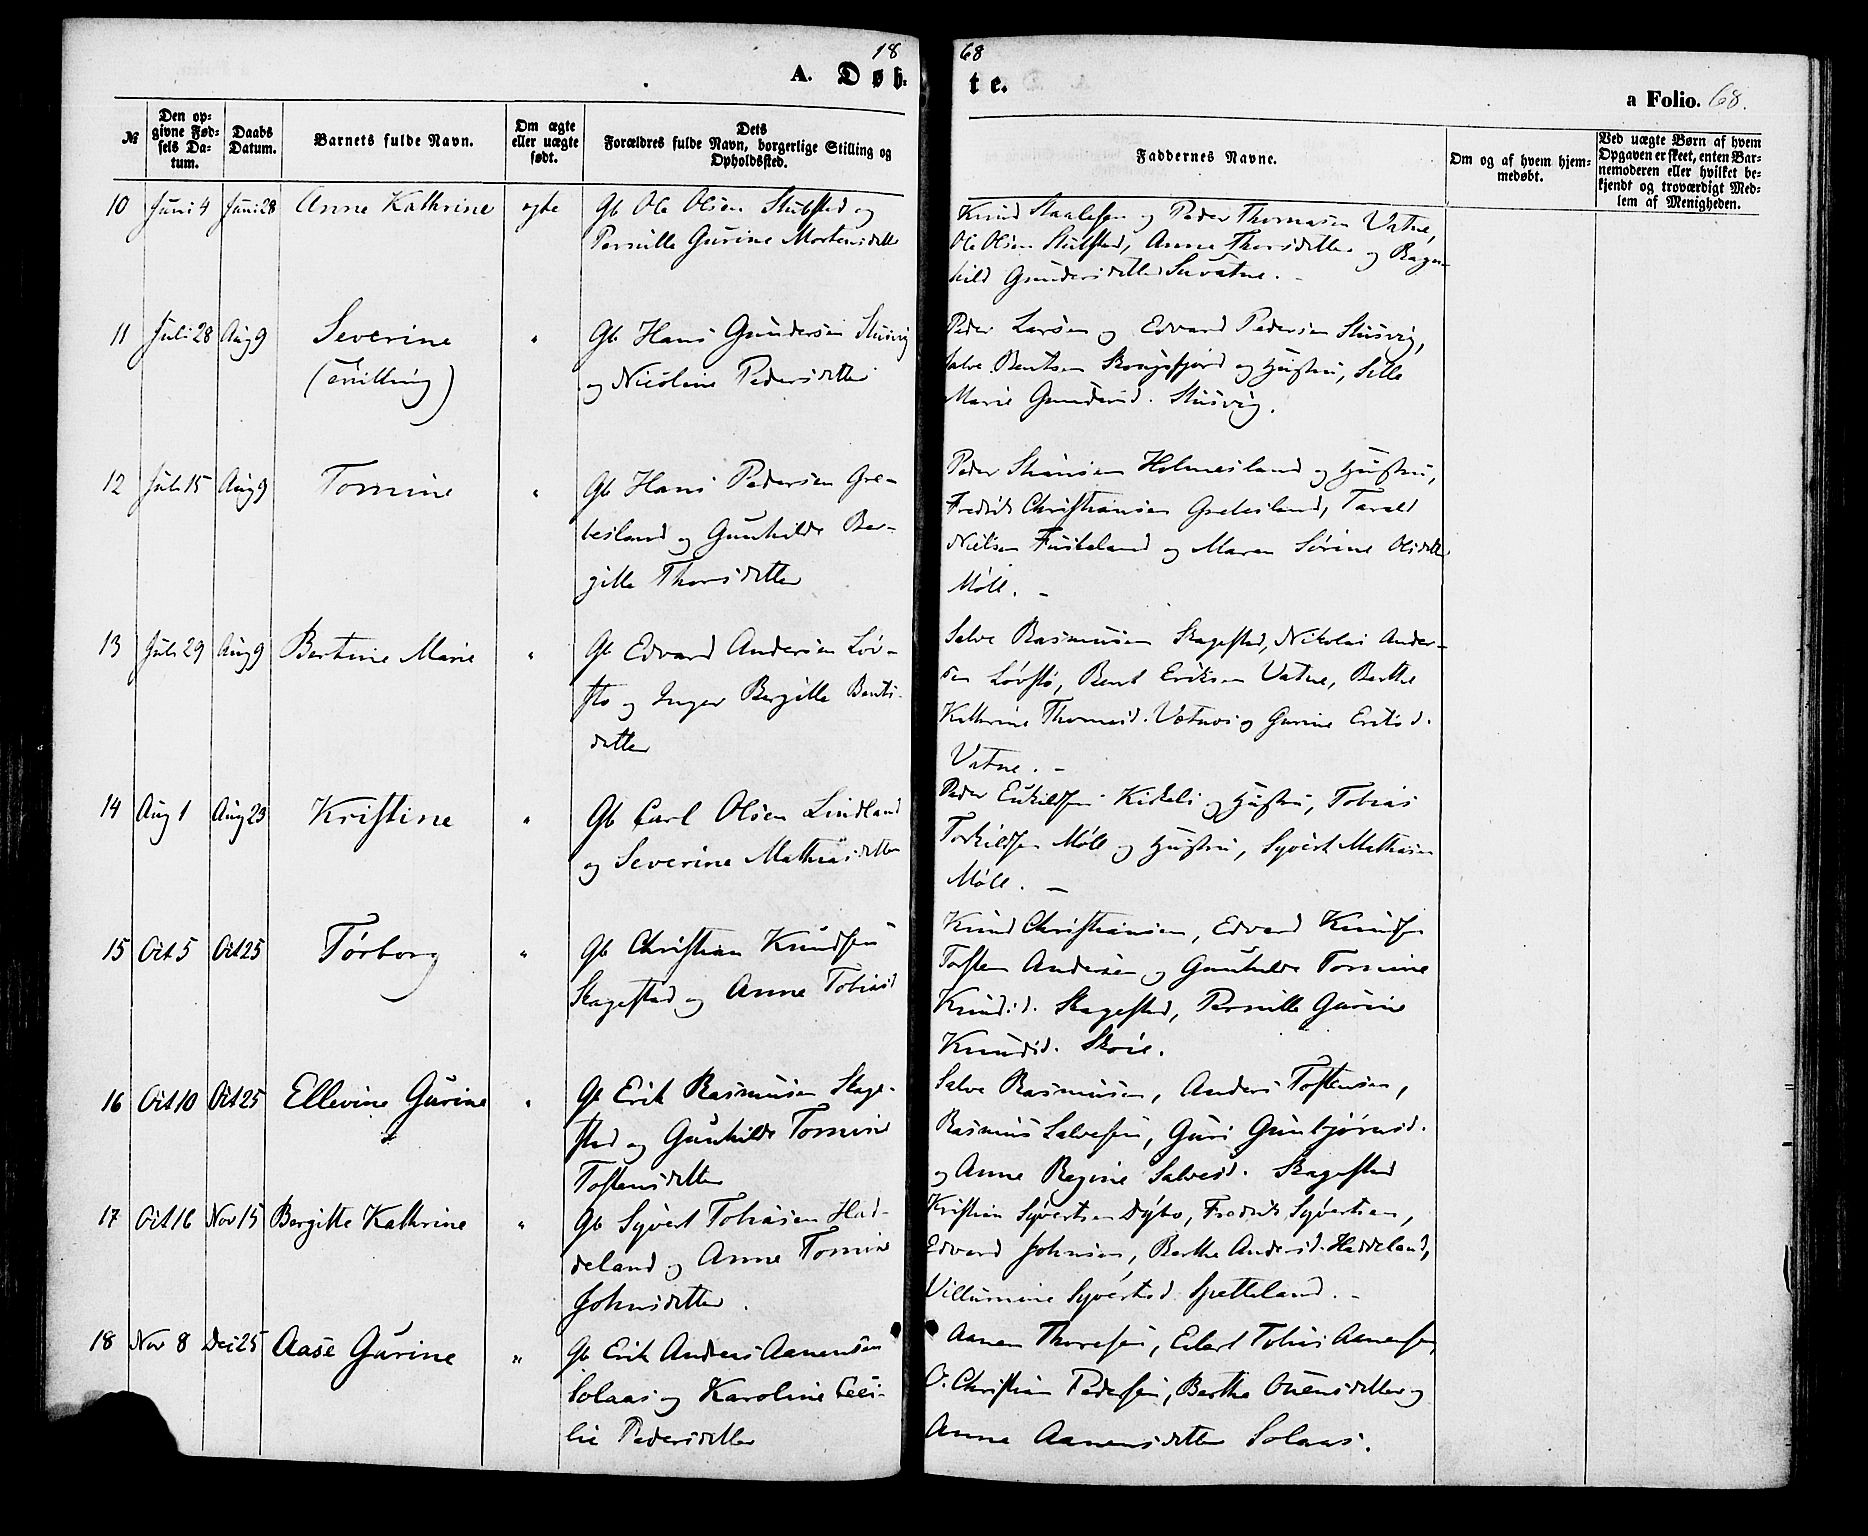 1868
A. Døbte.
a Folio. 68.
№
Den opgivne Fødsels Datum.
Daabs Datum.
Barnets fulde Navn.
Om ægte eller uægte født.
Dets Forældres fulde Navn, borgerlige Stilling og Opholdssted.
Faddernes Navne.
Om og af hvem hjemmedøbt.
Ved uægte Børn af hvem Opgaven er skeet, enten Barnemoderen eller hvilket bekjendt og troværdigt Medlem af Menigheden.
10 Juni 4 Juni 28 Anne Kathrine ægte
Gb Ole Olsen Stubsted og
Pernille Gurine Mortensdatter
Knud Staalesen og Peder Thomasen Vatne,
Ole Olsen Stubsted, Anne Thorsdatter og Ragn-
hild Gundersdatter
11 Juli 28 Aug 9 Severine "
(tvilling)
Gb Hans Gundersen Stusvig
og Nicoline Pedersdatter
Peder Larsen og Edvard Pedersen Stusvig,
Salve Bentsen og Hustru, Sille
Marie Gundersd. Stusvig.
12 Juli 15 Aug 9 Tomine "
Gb Hans Pedersen Gre-
besland og Gunhilde Ber-
gitte Thorsdatter
Peder Holmesland og Hustru,
Fredrik Christiansen Grebesland, Tarald
Nielsen Fuskeland og Maren Sørine Olsdatter
Møll. -
13 Juli 29 Aug 9 Bertine Marie "
Gb Edvard Andersen Løv-
stø og Inger Bergitte Bents-
datter
Salve Rasmusen Skagestad, Nikolai Ander-
sen Løvstø, Bent Eriksen Vatne, Berthe
Kathrine Thomasd. Vatne og Gurine Eriksd.
Vatne. -
14 Aug 1 Aug 23 Kristine "
Gb Carl Olsen Lindland
og Severine Mathiasdatter
Peder Eskildsen og Hustru, Tobias
Torkildsen Møll og Hustru, Syvert Mathisen
Møll. -
15 Oct 5 Oct 25 Tørborg "
Gb Christian Knudsen
Skagestad og Anne Tobiasd
Knud Christiansen, Edvard Knudsen
Tosten Andersen og Gunhilde Tomine
Knudsd. Skagestad, Pernille Gurine
Knudsd. Skoie.
16 Oct 10 Oct 25 Ellevine Gurine "
Gb Erik Rasmusen Skage-
stad og Gunhilde Tomine
Tostensdatter
Salve Rasmusen, Anders Tostensen,
Rasmus Salvesen, Guri Gunbjørnsd.
og Anne Regine Salvesd. Skagestad
17 Oct 16 Nov 15 Bergitte Kathrine "
Gb Syvert Tobiasen Had-
deland og Anne Tomine
Johnsdatter.
Kristian Syvertsen Dybo, Fredrik Syvertsen,
Edvard Johnsen, Berthe Andersd. Haddeland,
Villumine Syvertsd. Spetteland. -
18 Nov 8 Dec 25 Aase Gurine "
Gb Erik Andreas Aanensen
Solaas og Karoline Ceci-
lie Pedersdatter
Aanen Thoresen, Edert Tobias Aanensen,
O. Christian Pedersen, Berthe Ouensdatter og
Anne Aanensdatter Solaas.